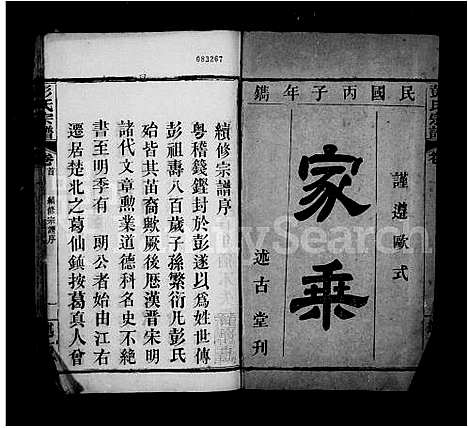 083267
民國丙子年鐫
謹遵歐式
家乘
述古堂刊
續修宗譜序
粵稽籛鏗封於彭遂以為姓世傳
彭祖壽八百歲子孫繁衍凡彭氏
殆皆其苗裔歟厥後歷漢晉宋明
諸代文章勲業道德科名史不絕
書至明季有 朗公者始由江右
遷居楚北之葛仙鎮按葛真人曾
彭氏宗譜
卷首
續修宗譜序
彭氏宗譜
MySearch